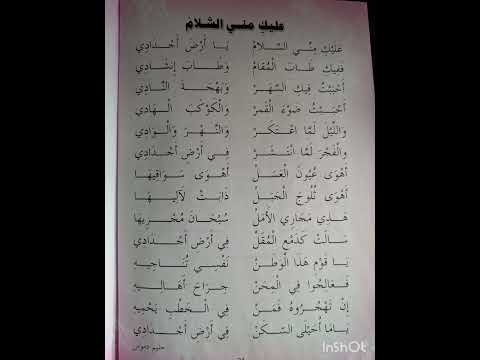 عليكِ مني السَّلام
عَلَيْكِ مِنِّي السَّلَامْ يَا أَرْضَ أَجْدَادِي
فَفِيكِ طَابَ الْمُقَامْ وَطَابَ إِنْشَادِي
أَحْبَبْتُ فِيكِ السَّهَرْ وَبَهْجَةَ النَّادِي
أَحْبَبْتُ ضَوْءَ الْقَمَرْ وَالْكَوْكَبَ الْهَادِي
وَاللَّيْلَ لَمَّا اعْتَكَرْ وَالنَّهْرَ وَالْوَادِي
وَالْفَجْرَ لَمَّا انْتَشَرْ فِي أَرْضِ أَجْدَادِي
أَهْوَى عُيُونَ الْعَسَلْ أَهْوَى سَوَاقِيهَا
أَهْوَى ثُلُوجَ الْجَبَلْ ذَابَتْ لَآلِيهَا
هَذِي مَجَارِي الْأَمَلْ سُبْحَانَ مُجْرِيهَا
سَالَتْ كَدَمْعِ الْمُقَلْ فِي أَرْضِ أَجْدَادِي
يَا قَوْمِ هَذَا الْوَطَنْ نَفْسِي تُنَاجِيهِ
فَعَالِجُوا فِي الْمِحَنْ جِرَاحَ أَهَالِيهِ
إِنْ تَهْجُرُوهُ فَمَنْ فِي الْخَطْبِ يَحْمِيهِ
يَا مَا أُحَيْلَى السَّكَنْ فِي أَرْضِ أَجْدَادِي
حليم دموس
InShOt